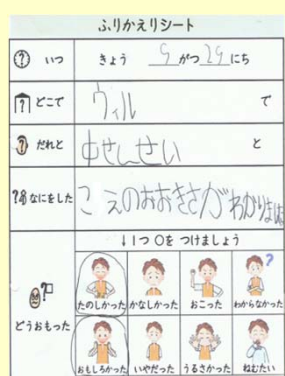 ふりかえりシート
いつ きょう 9がつ29にち
どこで ウィル で
だれと 中せんせい と
なにをした こえのおおきさがわかりました
↓1つ○を つけましょう
どうおもった
たのしかった かなしかった おこった わからなかった
おもしろかった いやだった うるさかった ねむたい